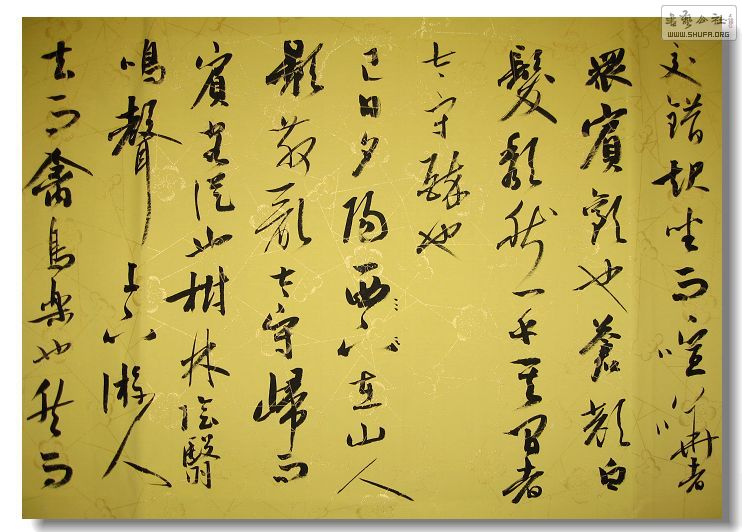 交錯起坐而喧嘩者
眾賓歡也蒼顏白
髮頹然乎其間者
太守醉也
已日夕陽西下在山人
影散亂太守歸而
賓客從也樹林陰翳
鳴聲上下游人
去而禽鳥樂也然而
书艺公社
WWW.SHUFA.ORG